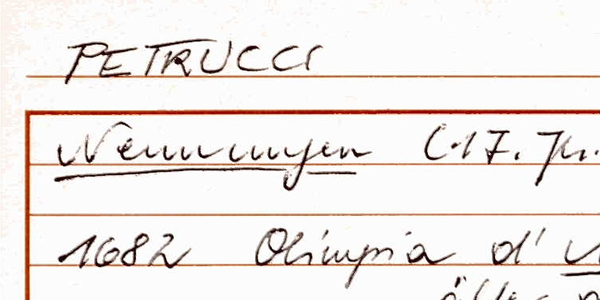 PETRUCCI
Nennungen (17. Jh.
1682 Olimpia d'